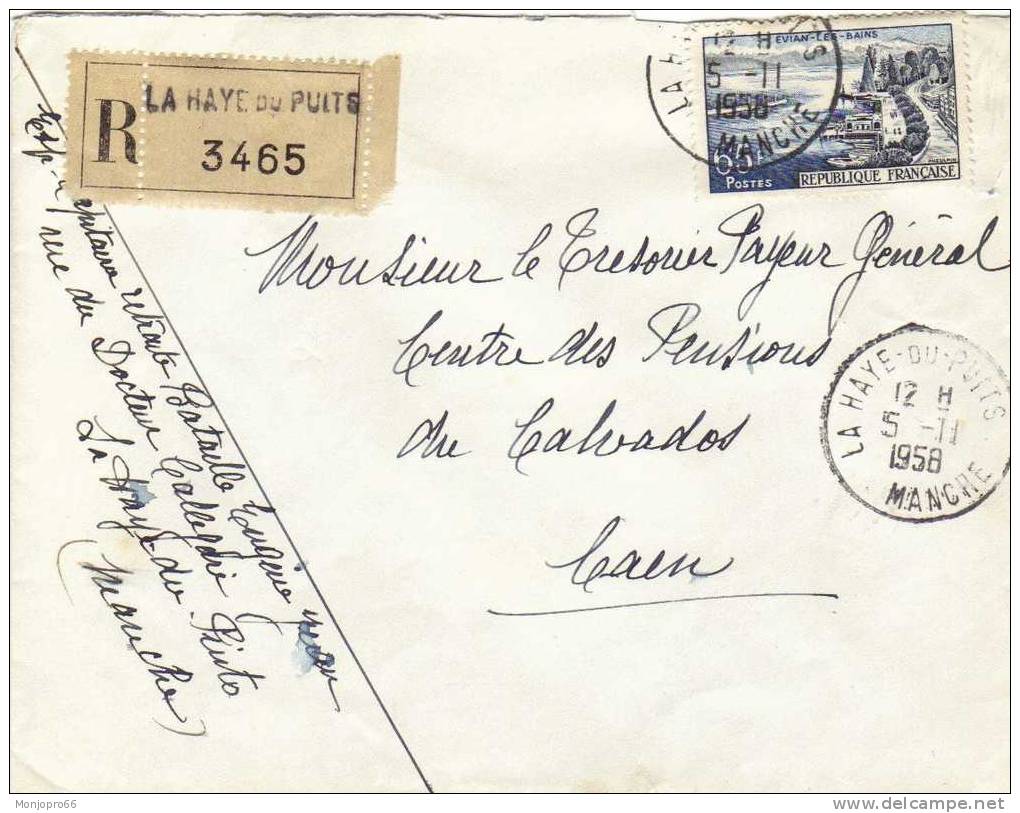 R
LA HAYE DU PUITS
3465
LA HA
12 H
5 -11
1958
MANCHE
EVIAN-LES-BAINS
65F
POSTES
RÉPUBLIQUE FRANÇAISE
Monsieur le Tresorier Payeur Général
Centre des Pensions
du Calvados
Caen
LA HAYE-DU-PUITS
12 H
5 -11
1958
MANCHE
Exp retraité Bataille Eugène
rue du Docteur Callégari
La Haye du Puits
(Manche)
Monjopro66
delcampe.net